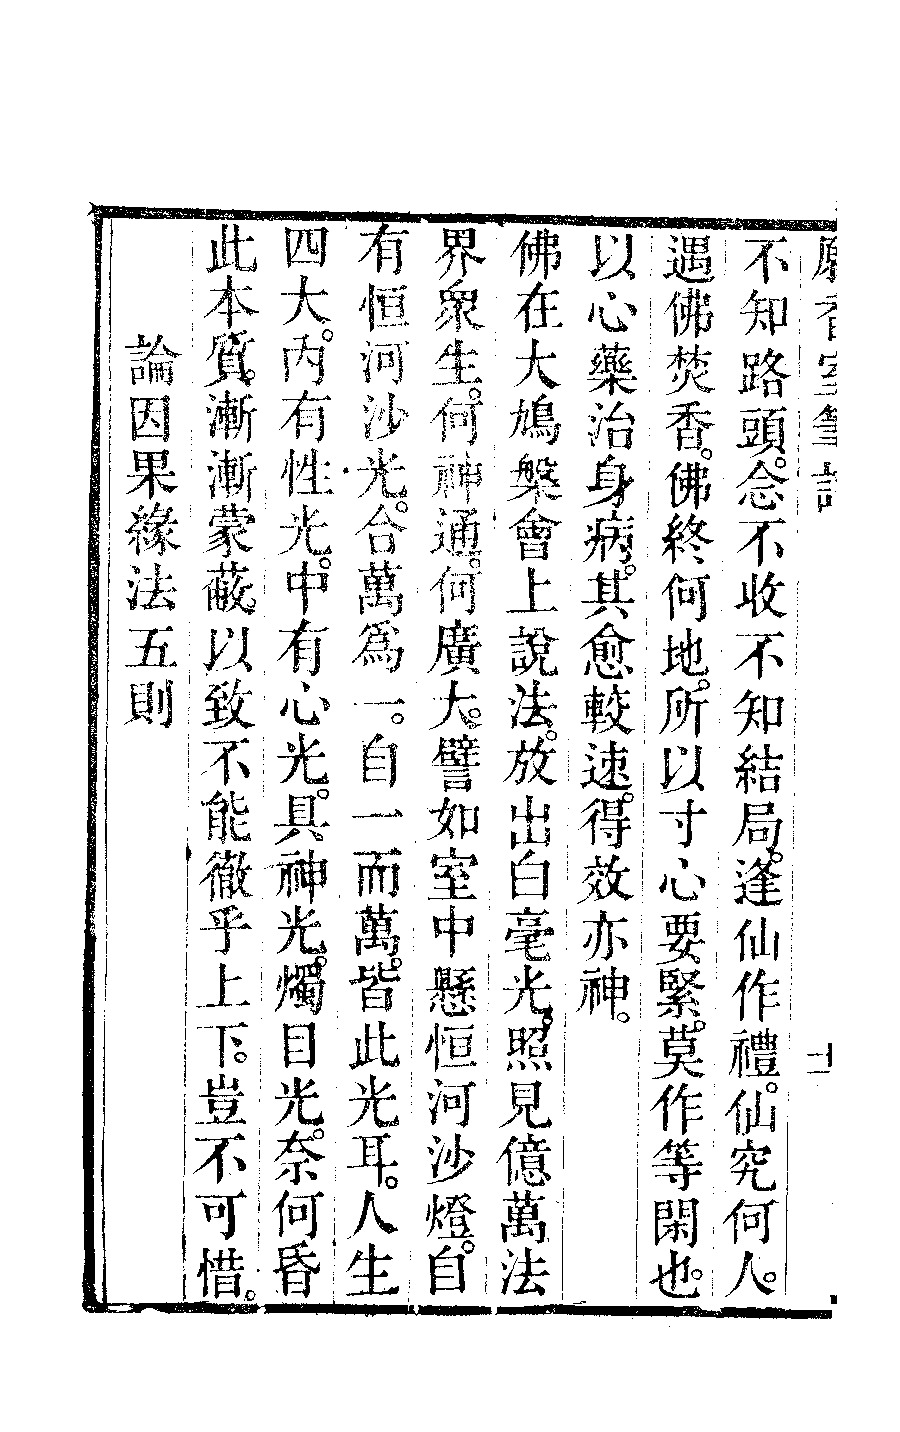 不知路頭。念不收不知結局。逢仙作禮。仙究何人。
遇佛焚香。佛終何地。所以寸心要緊。莫作等閑也。
以心藥治身病。其愈較速。得效亦神。
佛在大鳩槃會上說法。放出白毫光。照見億萬法
界衆生。何神通。何廣大。譬如室中懸恒河沙燈。自
有恒河沙光。合萬爲一。自一而萬。皆此光耳。人生
四大。內有性光。中有心光。具神光。燭目光。奈何昏
此本質。漸漸蒙蔽。以致不能徹乎上下。豈不可惜。
論因果緣法五則